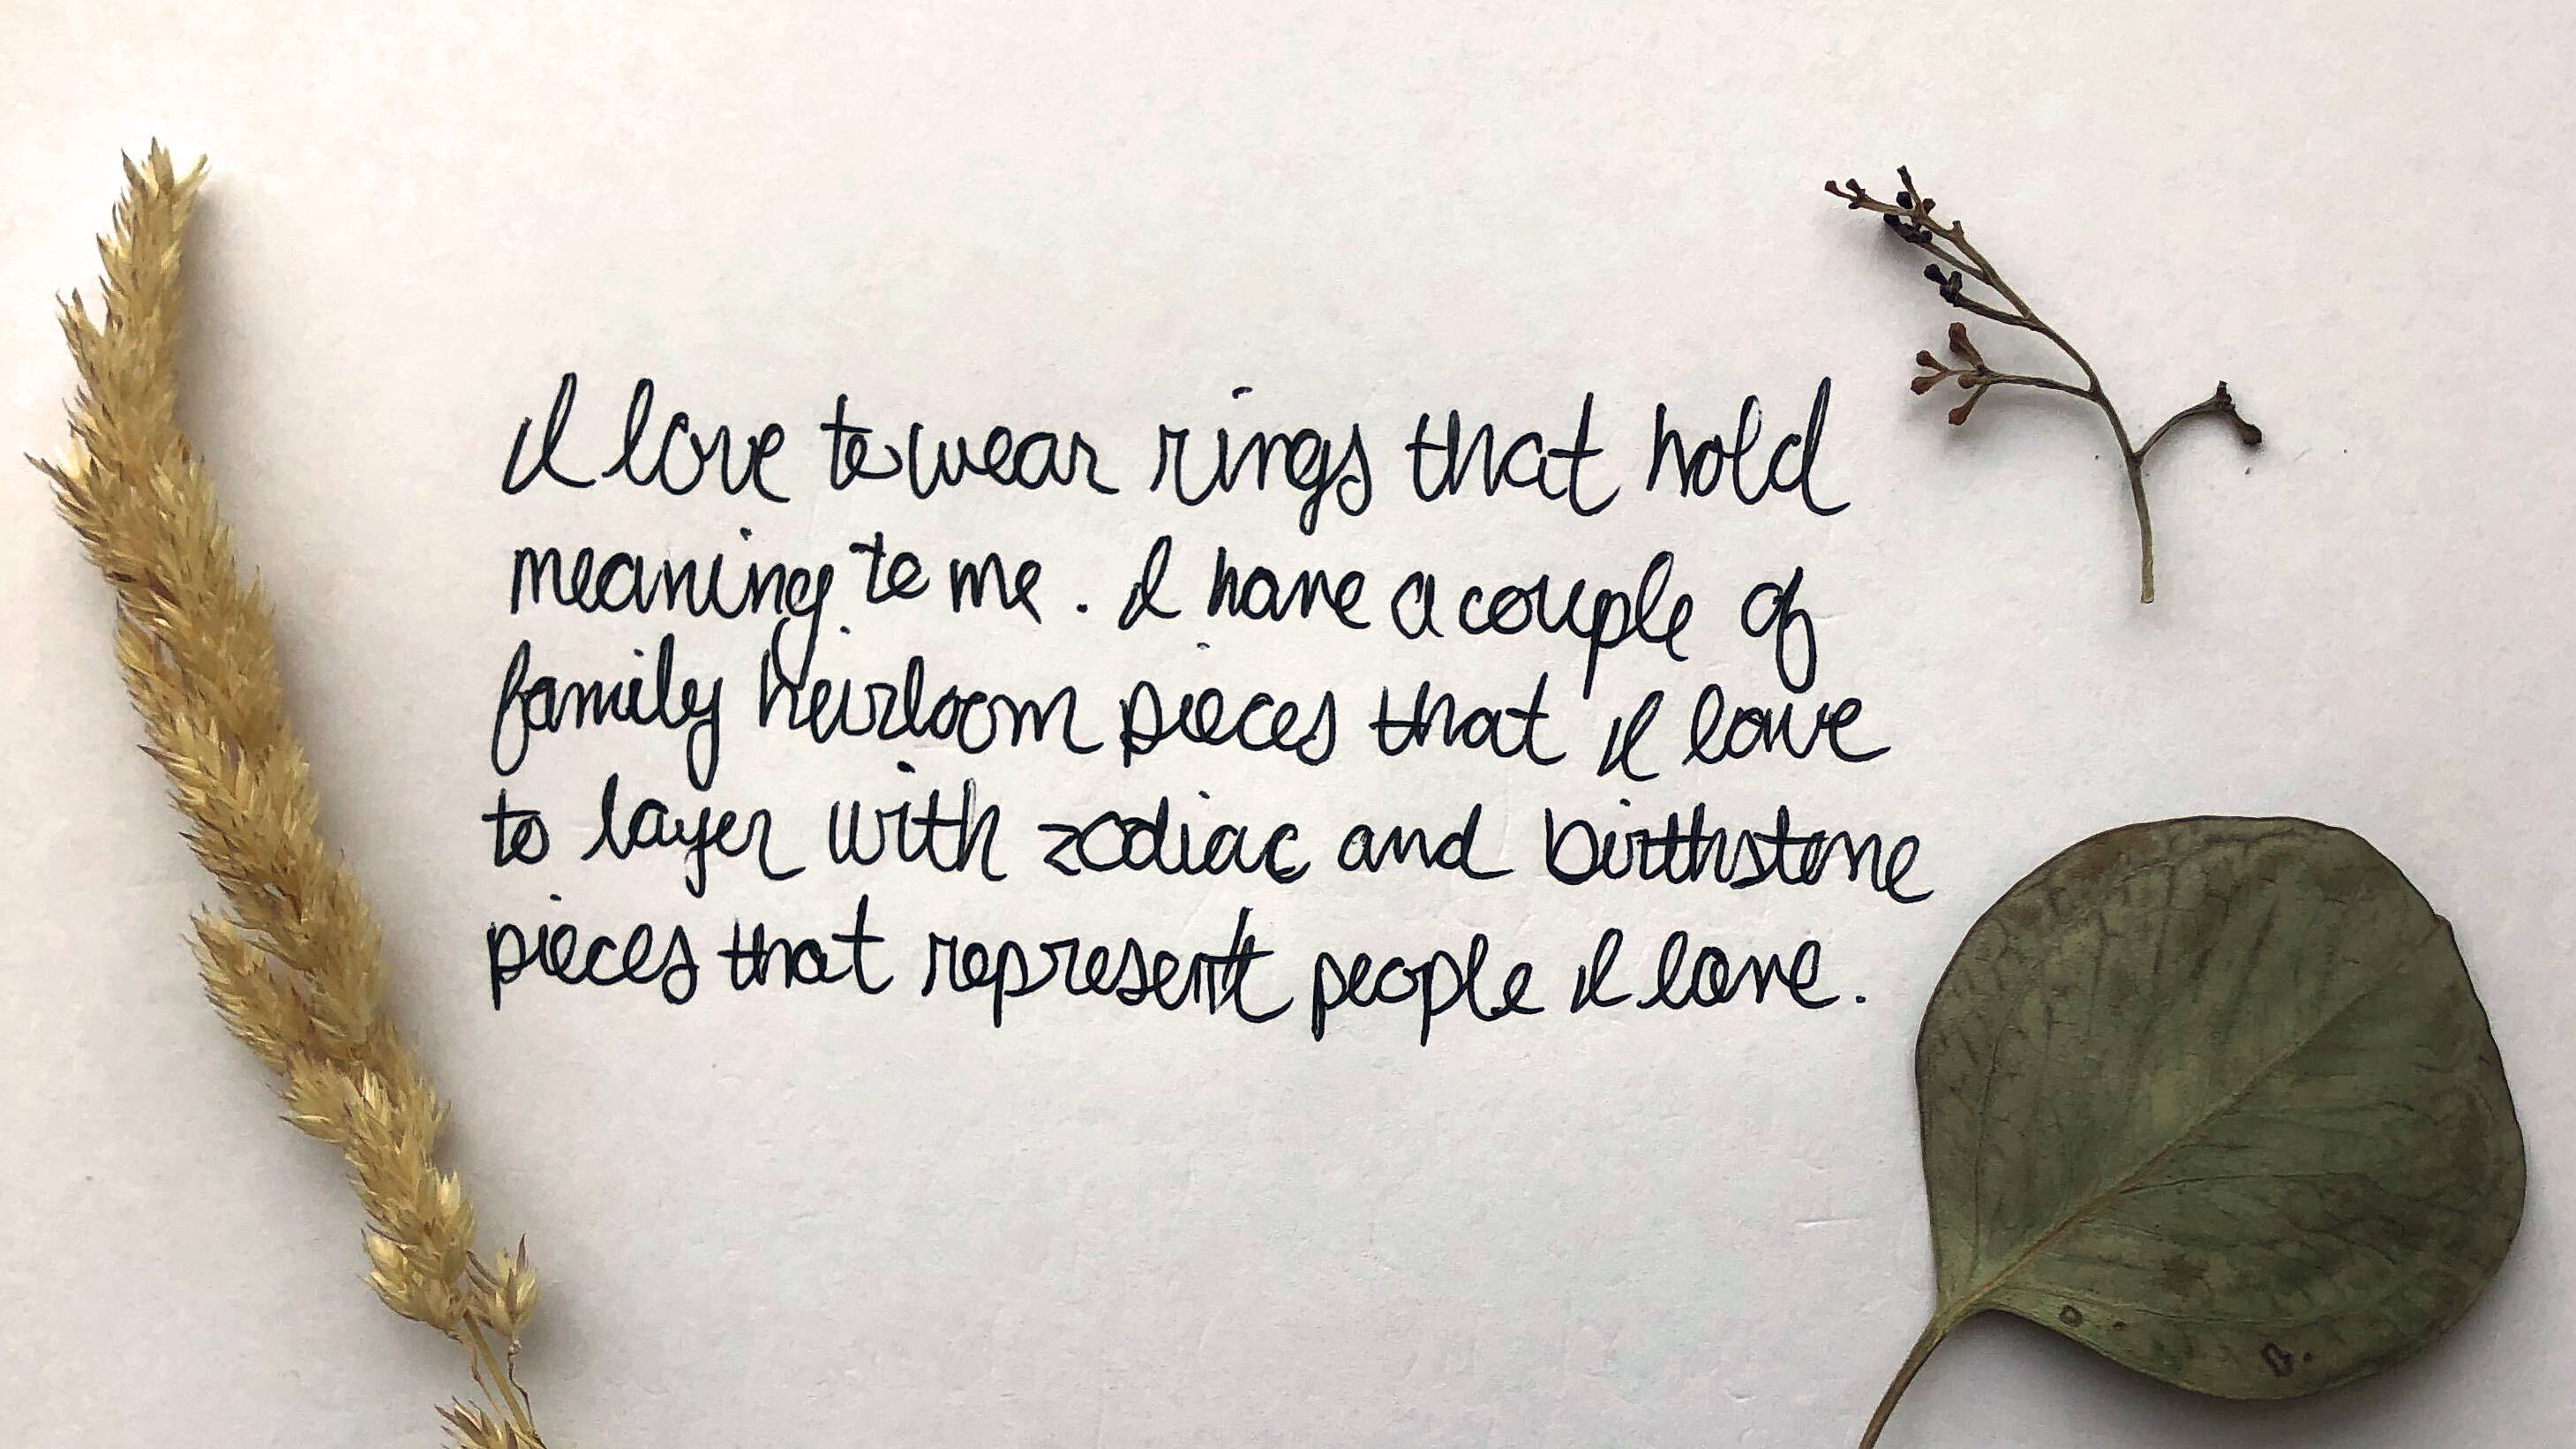 I love to wear rings that hold
meaning to me. I have a couple of
family heirloom pieces that I love
to layer with zodiac and birthstone
pieces that represent people I love.